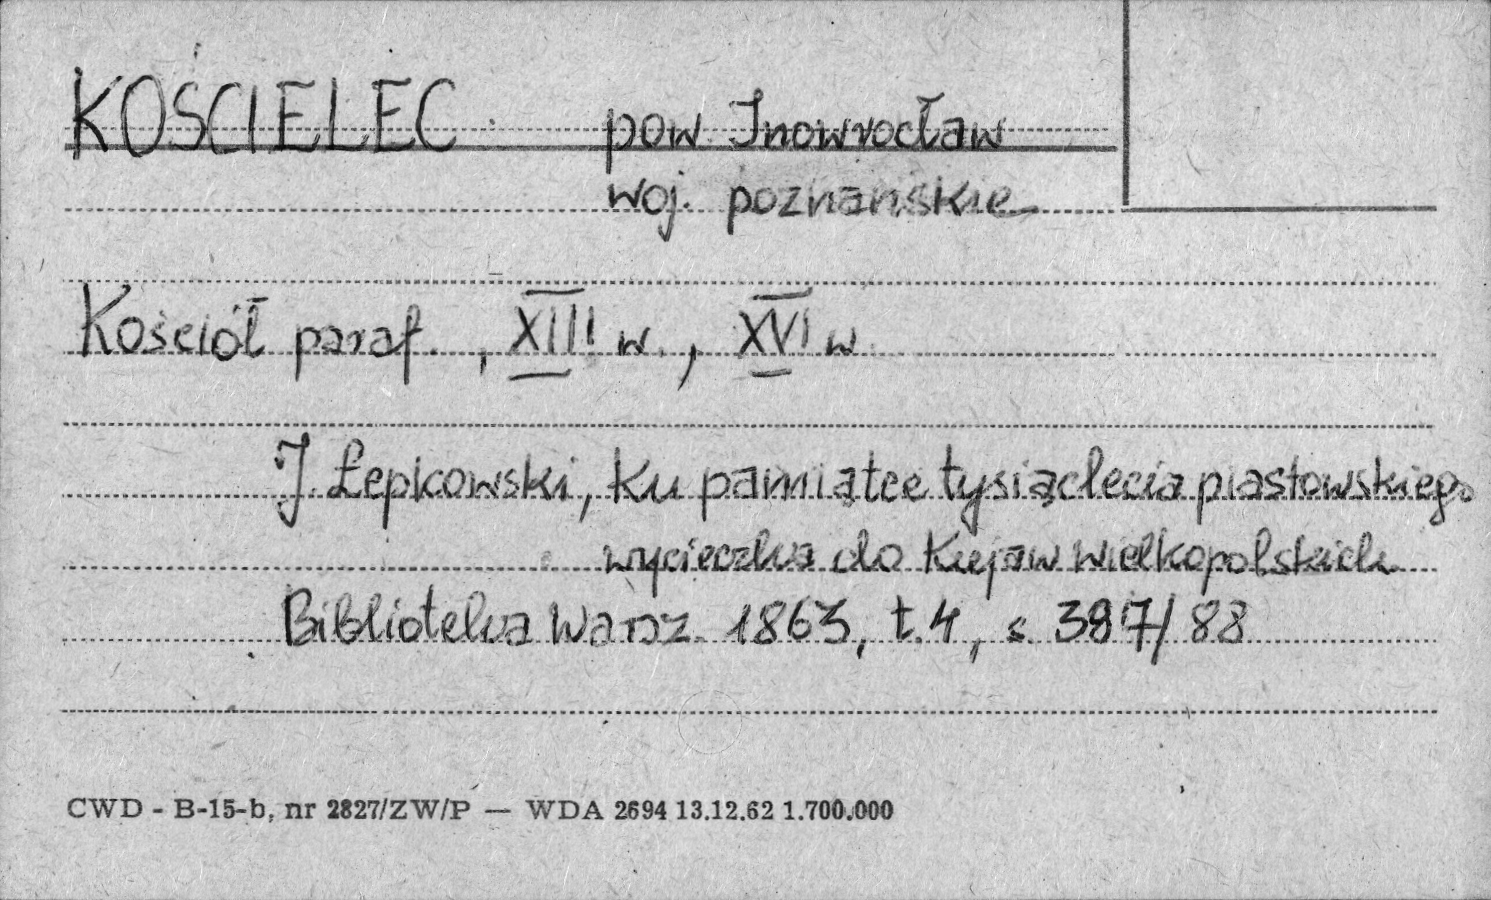 KOŚCIELEC pow Inowrocław
woj. poznańskie
Kościół paraf., XIII w., XVI w.
J. Łepkowski, Ku pamiątce tysiąclecia piastowskiego
wycieczka do Kujaw Wielkopolskich
Biblioteka Warsz. 1863, t. 4, s. 387/88
CWD - B-15-b, nr 2827/ZW/P — WDA 2694 13.12.62 1.700.000